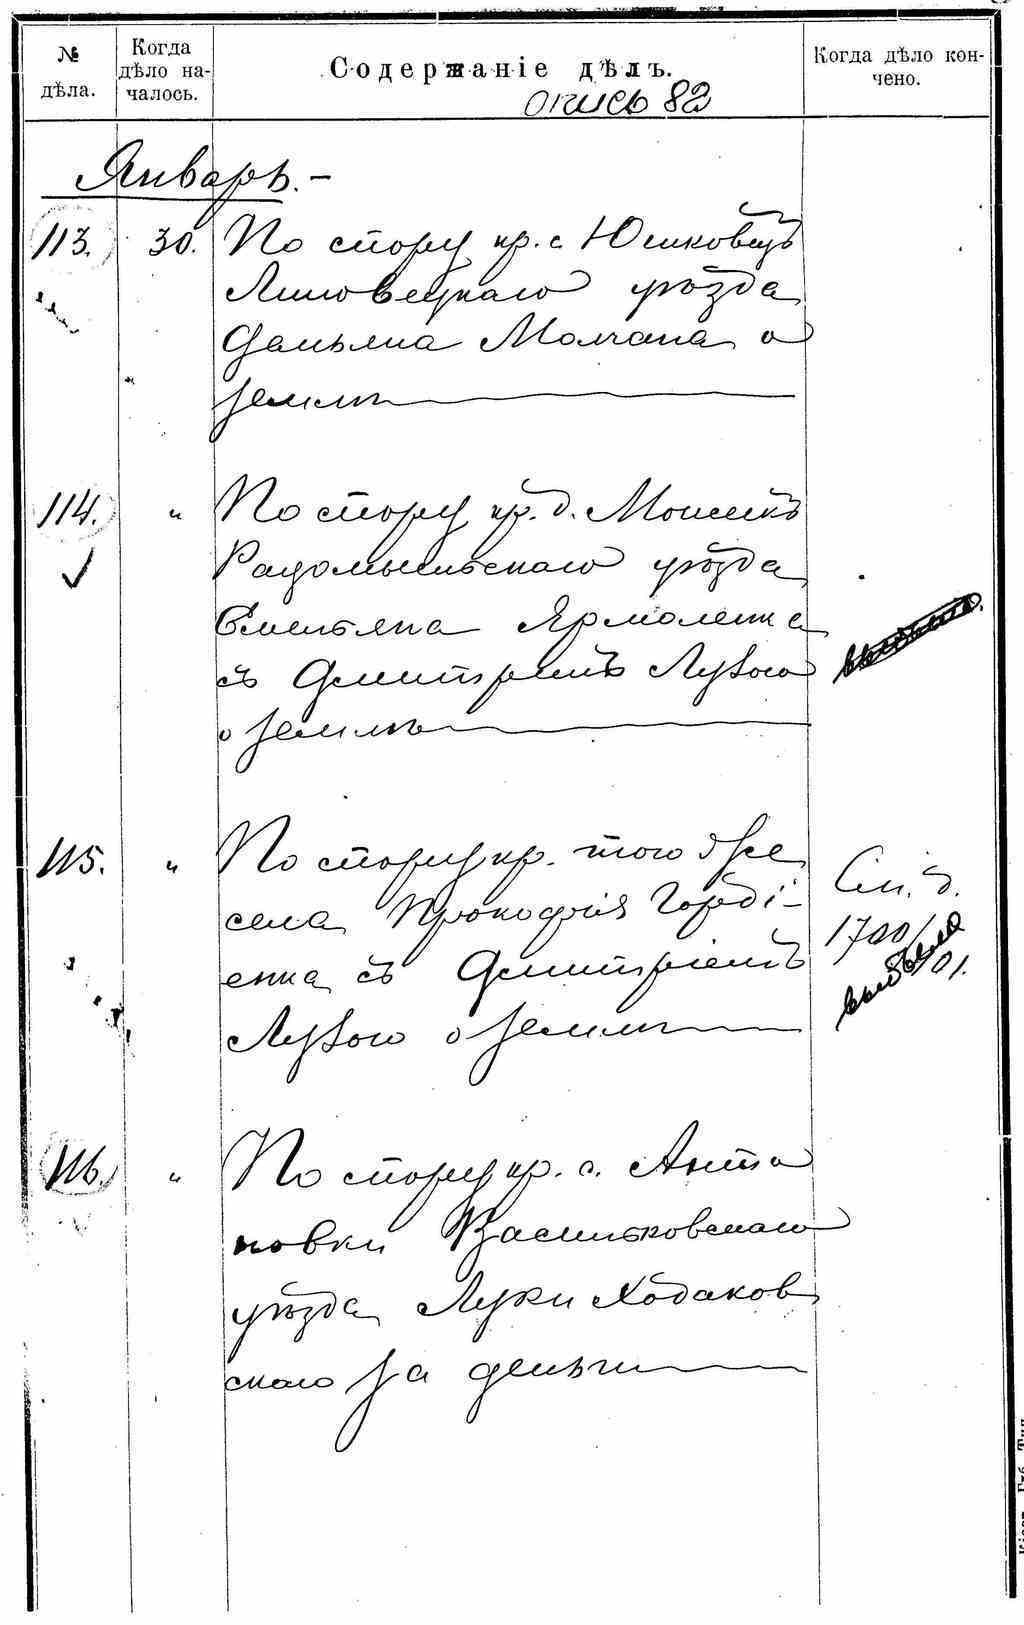 № дѣла.
Когда дѣло на-
чалось.
Содержаніе дѣлъ.
Когда дѣло кон-
чено.
опись 82
Январь.-
113. 30. По спору кр. с. Юшковецъ
Липовецкаго уѣзда
Демьяна Молчана о
землѣ
114. " По спору кр. д. Мошекъ
Радомысльскаго уѣзда
Емельяна Ярмоленка
съ Дмитріемъ
о землѣ
115. " По спору кр. того же
села Прокофія Горді-
енка съ Дмитріемъ
о землѣ
См. д.
1700/
01.
выбыло
116. " По спору кр. с. Анто
новки Васильковскаго
уѣзда Луки Ходаков
скаго за деньги